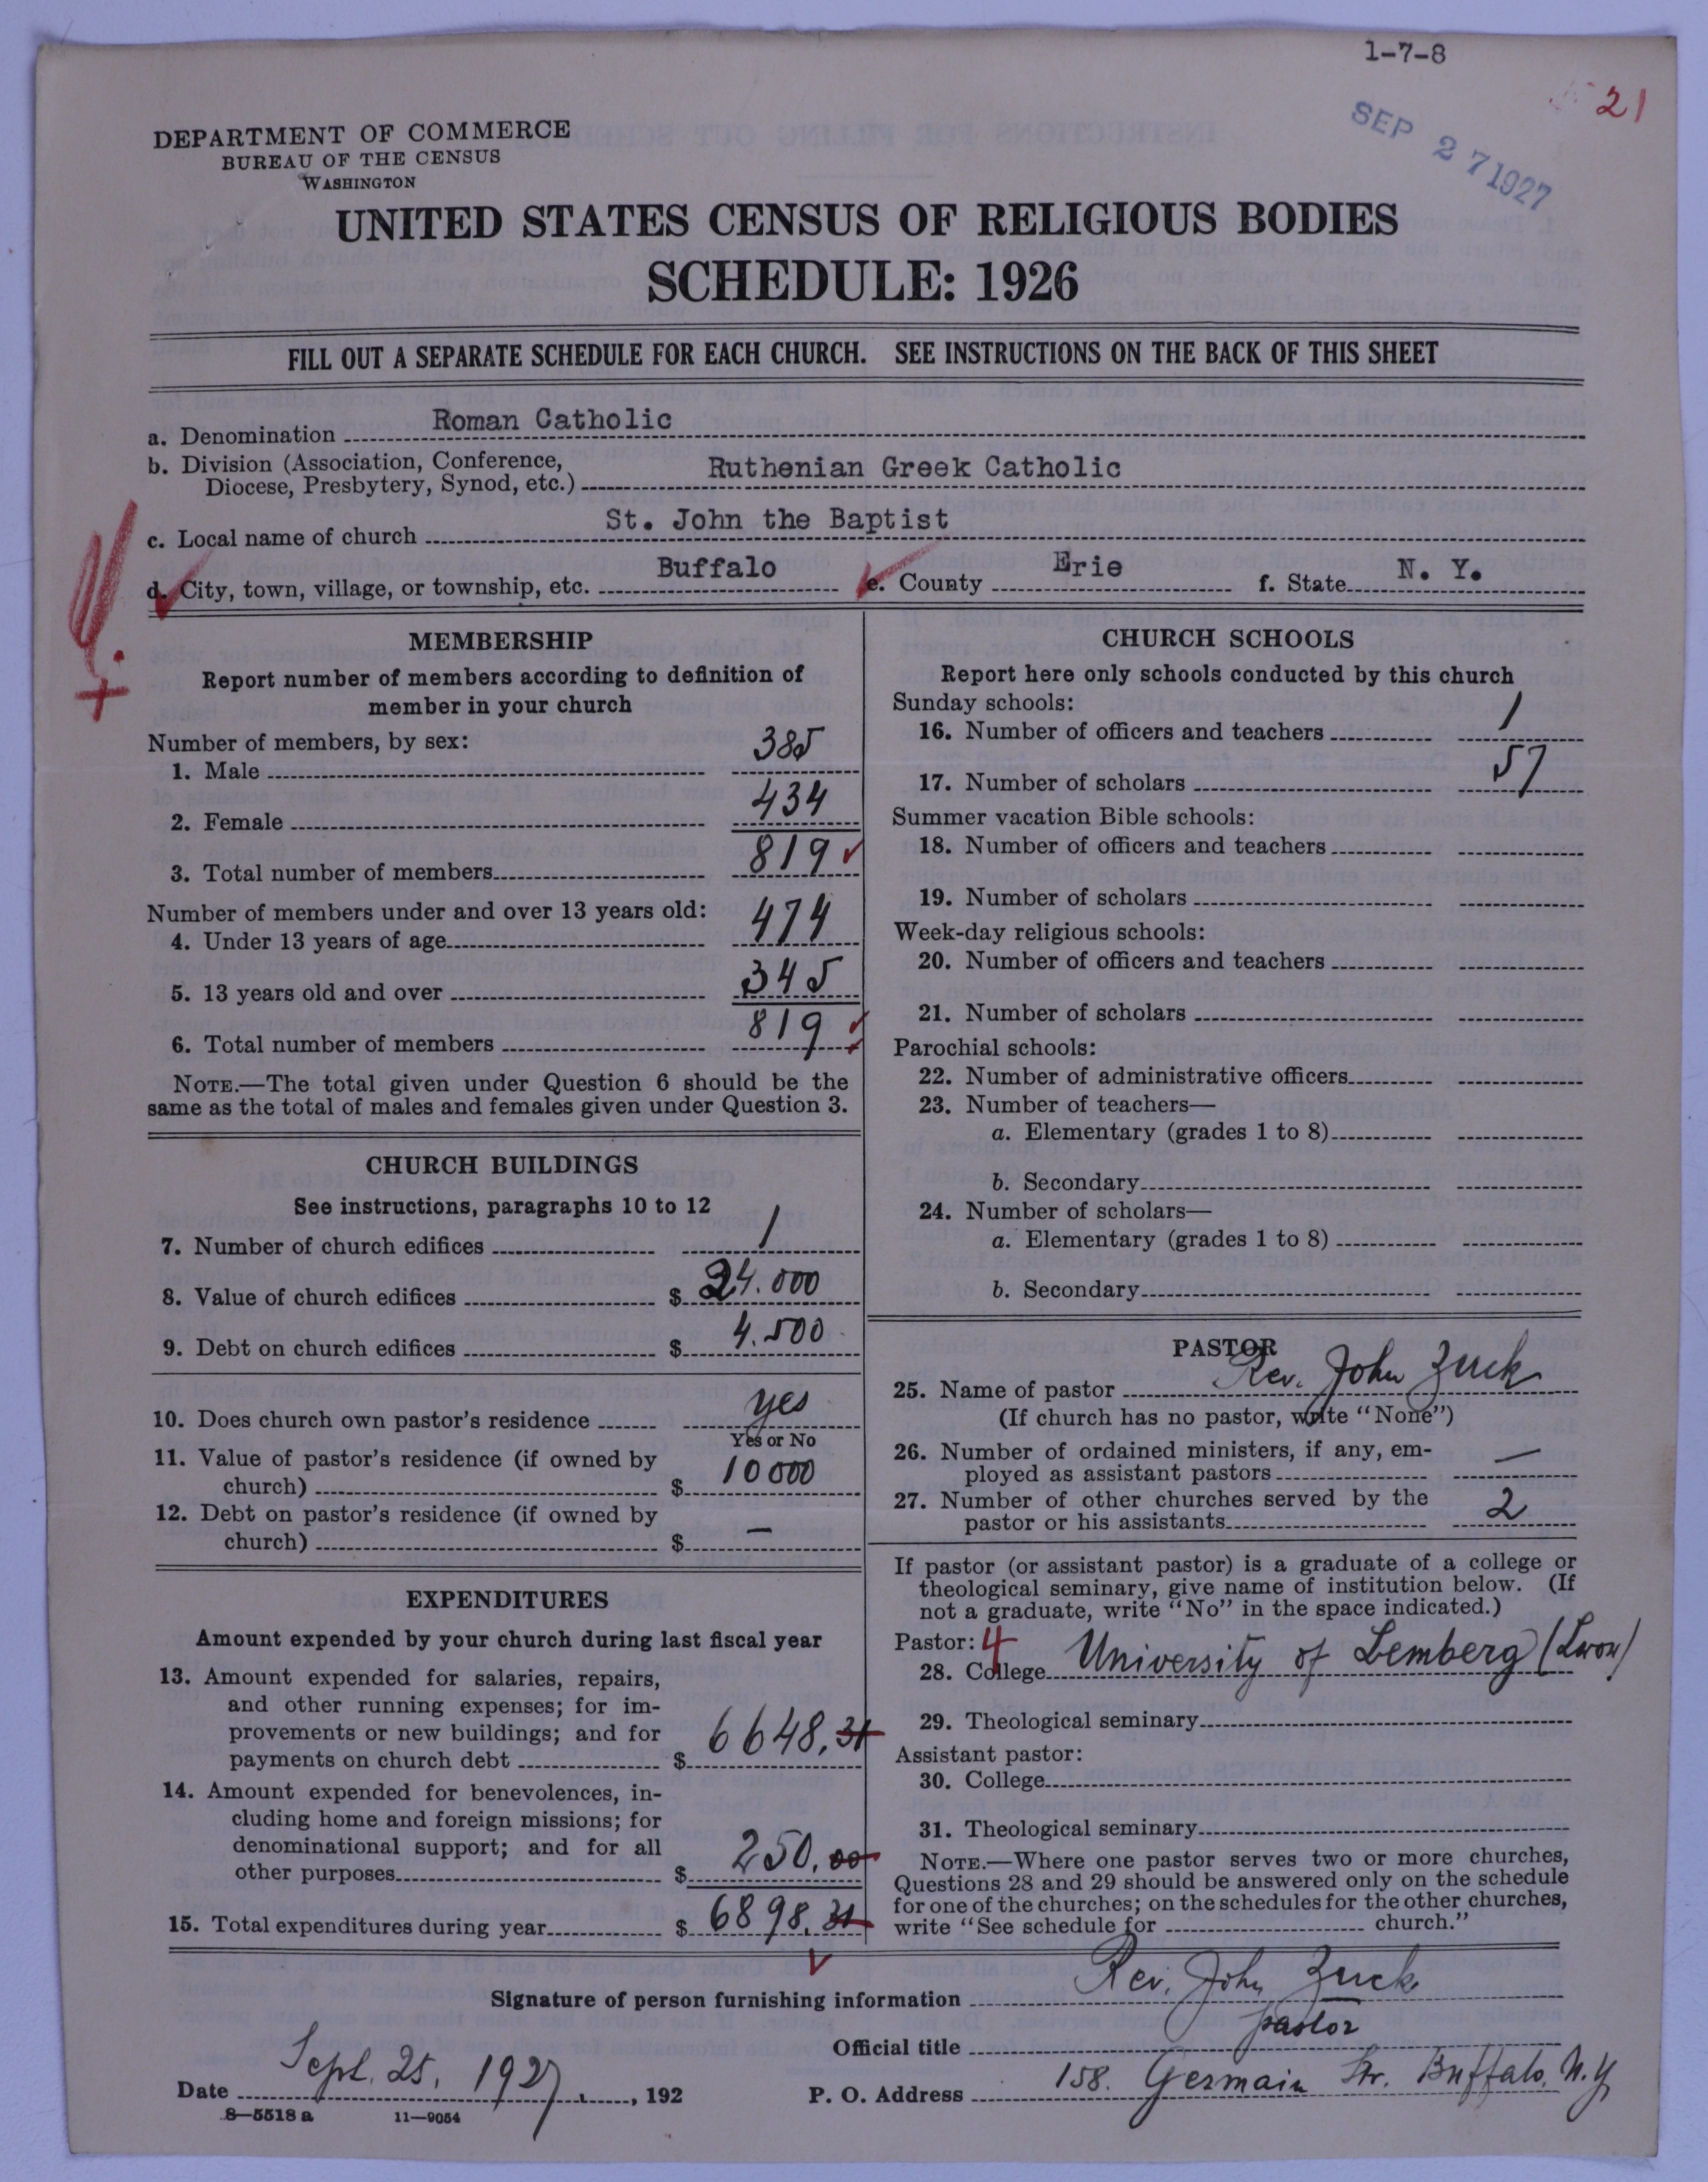 1-7-8
21
SEP 27 1927
DEPARTMENT OF COMMERCE
BUREAU OF THE CENSUS
WASHINGTON
UNITED STATES CENSUS OF RELIGIOUS BODIES
SCHEDULE: 1926
FILL OUT A SEPARATE SCHEDULE FOR EACH CHURCH. SEE INSTRUCTIONS ON THE BACK OF THIS SHEET
a. Denomination Roman Catholic
b. Division (Association, Conference,
Diocese, Presbytery, Synod, etc.) Ruthenian Greek Catholic
c. Local name of church St. John the Baptist
d. City, town, village, or township, etc. Buffalo e. County Erie f. State N. Y.
MEMBERSHIP
Report number of members according to definition of
member in your church
Number of members, by sex:
1. Male 385
2. Female 434
3. Total number of members 819
Number of members under and over 13 years old:
4. Under 13 years of age 474
5. 13 years old and over 345
6. Total number of members 819
NOTE.—The total given under Question 6 should be the
same as the total of males and females given under Question 3.
CHURCH BUILDINGS
See instructions, paragraphs 10 to 12
7. Number of church edifices 1
8. Value of church edifices $ 24.000
9. Debt on church edifices $ 4.500
10. Does church own pastor's residence yes
Yes or No
11. Value of pastor's residence (if owned by
church) $ 10000
12. Debt on pastor's residence (if owned by
church) $ —
EXPENDITURES
Amount expended by your church during last fiscal year
13. Amount expended for salaries, repairs,
and other running expenses; for im-
provements or new buildings; and for
payments on church debt $ 6648.31
14. Amount expended for benevolences, in-
cluding home and foreign missions; for
denominational support; and for all
other purposes $ 250.00
15. Total expenditures during year $ 6898.31
CHURCH SCHOOLS
Report here only schools conducted by this church
Sunday schools:
16. Number of officers and teachers 1
17. Number of scholars 57
Summer vacation Bible schools:
18. Number of officers and teachers
19. Number of scholars
Week-day religious schools:
20. Number of officers and teachers
21. Number of scholars
Parochial schools:
22. Number of administrative officers
23. Number of teachers—
a. Elementary (grades 1 to 8)
b. Secondary
24. Number of scholars—
a. Elementary (grades 1 to 8)
b. Secondary
PASTOR
25. Name of pastor Rev. John Zuck
(If church has no pastor, write "None")
26. Number of ordained ministers, if any, em-
ployed as assistant pastors —
27. Number of other churches served by the
pastor or his assistants 2
If pastor (or assistant pastor) is a graduate of a college or
theological seminary, give name of institution below. (If
not a graduate, write "No" in the space indicated.)
Pastor: 4
28. College University of Lemberg (Lwow)
29. Theological seminary
Assistant pastor:
30. College
31. Theological seminary
NOTE.—Where one pastor serves two or more churches,
Questions 28 and 29 should be answered only on the schedule
for one of the churches; on the schedules for the other churches,
write "See schedule for church."
Signature of person furnishing information Rev. John Zuck
Official title pastor
Date Sept. 25, 1927, 192 P. O. Address 158. Germain Str. Buffalo, N.Y.
8—5518 a 11—9054